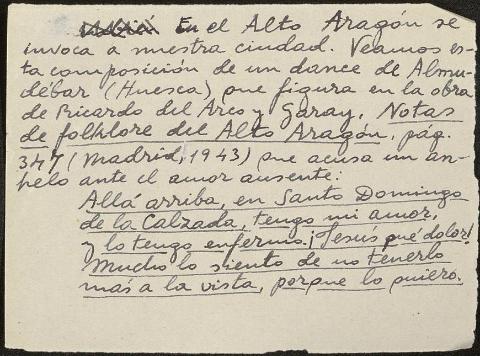 En el Alto Aragón se
invoca a nuestra ciudad. Veamos es-
ta composición de un dance de Almu-
débar (Huesca) que figura en la obra
de Ricardo del Arco y Garay, Notas
de folklore del Alto Aragón, pág.
347 (Madrid, 1943) que acusa un an-
helo ante el amor ausente:
Allá arriba, en Santo Domingo
de la Calzada, tengo mi amor,
y lo tengo enfermo. ¡Jesús qué dolor!
Mucho lo siento de no tenerlo
más a la vista, porque lo quiero.